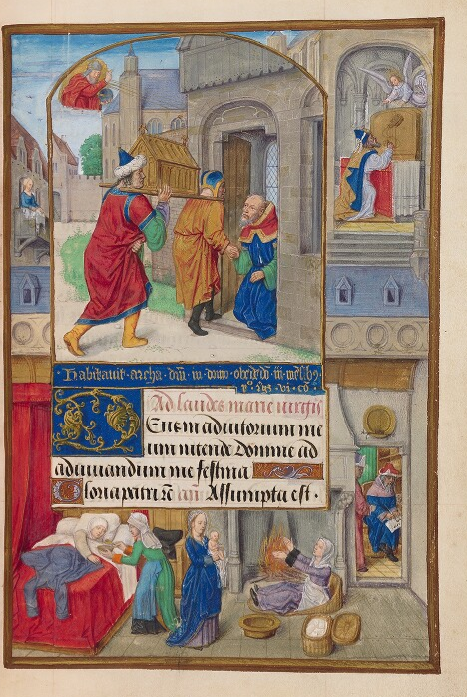 Habitavit archa dm̄ in domo obededō iii mēsib9
p° ꝑ. vi. c°
Ad laudes marie virgīs
Deus in adiutorium me
um intende Domine ad
adiuuandum me festina
Gloria patri ⁊c añ Assumpta est .